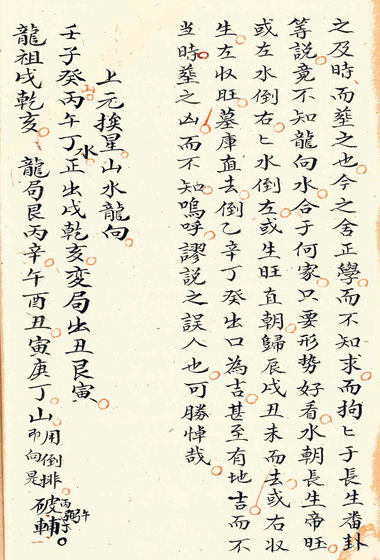 之及時而葬之也今之舍正學而不知求而拘匕于長生番卦
等說竟不知龍向水合于何家只要形勢好看水朝長生帝旺
或左水倒右匕水倒左或生旺直朝歸辰戌丑未而去或右収
生左収旺墓庫直去倒乙辛丁癸出口為吉甚至有地吉而不
当時塟之凶而不知嗚呼謬說之誤人也可勝悼哉
上元挨星山水龍向
壬子癸山丙午丁水正出戌乾亥変局出丑艮寅
龍祖戌乾亥 龍局艮丙辛午酉丑寅庚丁山用倒排
向是
破輔